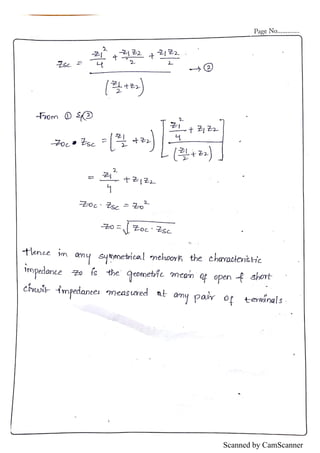 Page No.............
Zsc = (Z1²/4 + Z1Z2/2 + Z1Z2/2) / (Z1/2 + Z2) → ②
From ① & ②
Zoc • Zsc = [Z1/2 + Z2] [(Z1²/4 + Z1Z2) / (Z1/2 + Z2)]
= Z1²/4 + Z1Z2
Zoc . Zsc = Zo²
Zo = √Zoc . Zsc
Hence in any symmetrical network the characteristic
impedance Zo is the geometric mean of open & short
circuit impedances measured at any pair of terminals.
Scanned by CamScanner